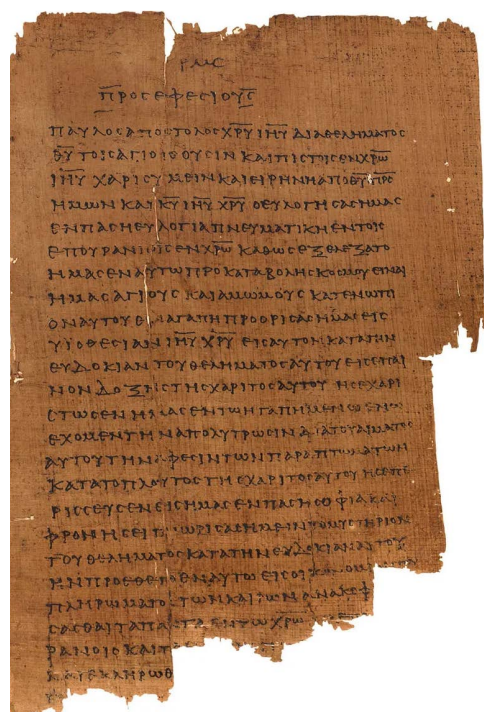 ΡΜϚ
ΠΡΟϹ ΕΦΕϹΙΟΥϹ
ΠΑΥΛΟϹ ΑΠΟϹΤΟΛΟϹ Χ̅Ρ̅Υ̅ Ι̅Η̅Υ̅ ΔΙΑ ΘΕΛΗΜΑΤΟϹ
Θ̅Υ̅ ΤΟΙϹ ΑΓΙΟΙϹ ΟΥϹΙΝ ΚΑΙ ΠΙϹΤΟΙϹ ΕΝ Χ̅Ρ̅Ω̅
Ι̅Η̅Υ̅ ΧΑΡΙϹ ΥΜΕΙΝ ΚΑΙ ΕΙΡΗΝΗ ΑΠΟ Θ̅Υ̅ Π̅Ρ̅Ϲ̅
ΗΜΩΝ ΚΑΙ Κ̅Υ̅ Ι̅Η̅Υ̅ Χ̅Ρ̅Υ̅ Ο ΕΥΛΟΓΗϹΑϹ ΗΜΑϹ
ΕΝ ΠΑϹΗ ΕΥΛΟΓΙΑ ΠΝΕΥΜΑΤΙΚΗ ΕΝ ΤΟΙϹ
ΕΠΟΥΡΑΝΙΟΙϹ ΕΝ Χ̅Ρ̅Ω̅ ΚΑΘΩϹ ΕΞΕΛΕΞΑΤΟ
ΗΜΑϹ ΕΝ ΑΥΤΩ ΠΡΟ ΚΑΤΑΒΟΛΗϹ ΚΟϹΜΟΥ ΕΙΝΑΙ
ΗΜΑϹ ΑΓΙΟΥϹ ΚΑΙ ΑΜΩΜΟΥϹ ΚΑΤΕΝΩΠΙ
ΟΝ ΑΥΤΟΥ ΕΝ ΑΓΑΠΗ ΠΡΟΟΡΙϹΑϹ ΗΜΑϹ ΕΙϹ
ΥΙΟΘΕϹΙΑΝ Ι̅Η̅Υ̅ Χ̅Ρ̅Υ̅ ΕΙϹ ΑΥΤΟΝ ΚΑΤΑ ΤΗΝ
ΕΥΔΟΚΙΑΝ ΤΟΥ ΘΕΛΗΜΑΤΟϹ ΑΥΤΟΥ ΕΙϹ ΕΠΑΙ
ΝΟΝ ΔΟΞΗϹ ΤΗϹ ΧΑΡΙΤΟϹ ΑΥΤΟΥ ΗϹ ΕΧΑΡΙ
ϹΤΩϹΕΝ ΗΜΑϹ ΕΝ ΤΩ ΗΓΑΠΗΜΕΝΩ ΕΝ Ω
ΕΧΟΜΕΝ ΤΗΝ ΑΠΟΛΥΤΡΩϹΙΝ ΔΙΑ ΤΟΥ ΑΙΜΑΤΟϹ
ΑΥΤΟΥ ΤΗΝ ΑΦΕϹΙΝ ΤΩΝ ΠΑΡΑΠΤΩΜΑΤΩΝ
ΚΑΤΑ ΤΟ ΠΛΟΥΤΟϹ ΤΗϹ ΧΑΡΙΤΟϹ ΑΥΤΟΥ ΗϹ ΕΠΕ
ΡΙϹϹΕΥϹΕΝ ΕΙϹ ΗΜΑϹ ΕΝ ΠΑϹΗ ϹΟΦΙΑ ΚΑΙ
ΦΡΟΝΗϹΕΙ ΓΝΩΡΙϹΑϹ ΗΜΕΙΝ ΤΟ ΜΥϹΤΗΡΙΟΝ
ΤΟΥ ΘΕΛΗΜΑΤΟϹ ΚΑΤΑ ΤΗΝ ΕΥΔΟΚΙΑΝ ΑΥΤΟΥ
ΗΝ ΠΡΟΕΘΕΤΟ ΕΝ ΑΥΤΩ ΕΙϹ
ΠΛΗΡΩΜΑΤΟϹ ΤΩΝ ΚΑΙΡΩΝ ΑΝΑΚΕΦ
ϹΑϹΘΑΙ ΤΑ ΠΑΝΤΑ ΕΝ ΤΩ Χ̅Ρ̅Ω̅
ΡΑΝΟΙϹ ΚΑΙ Τ
ΚΑΙ ΕΚΛΗΡΩΘ